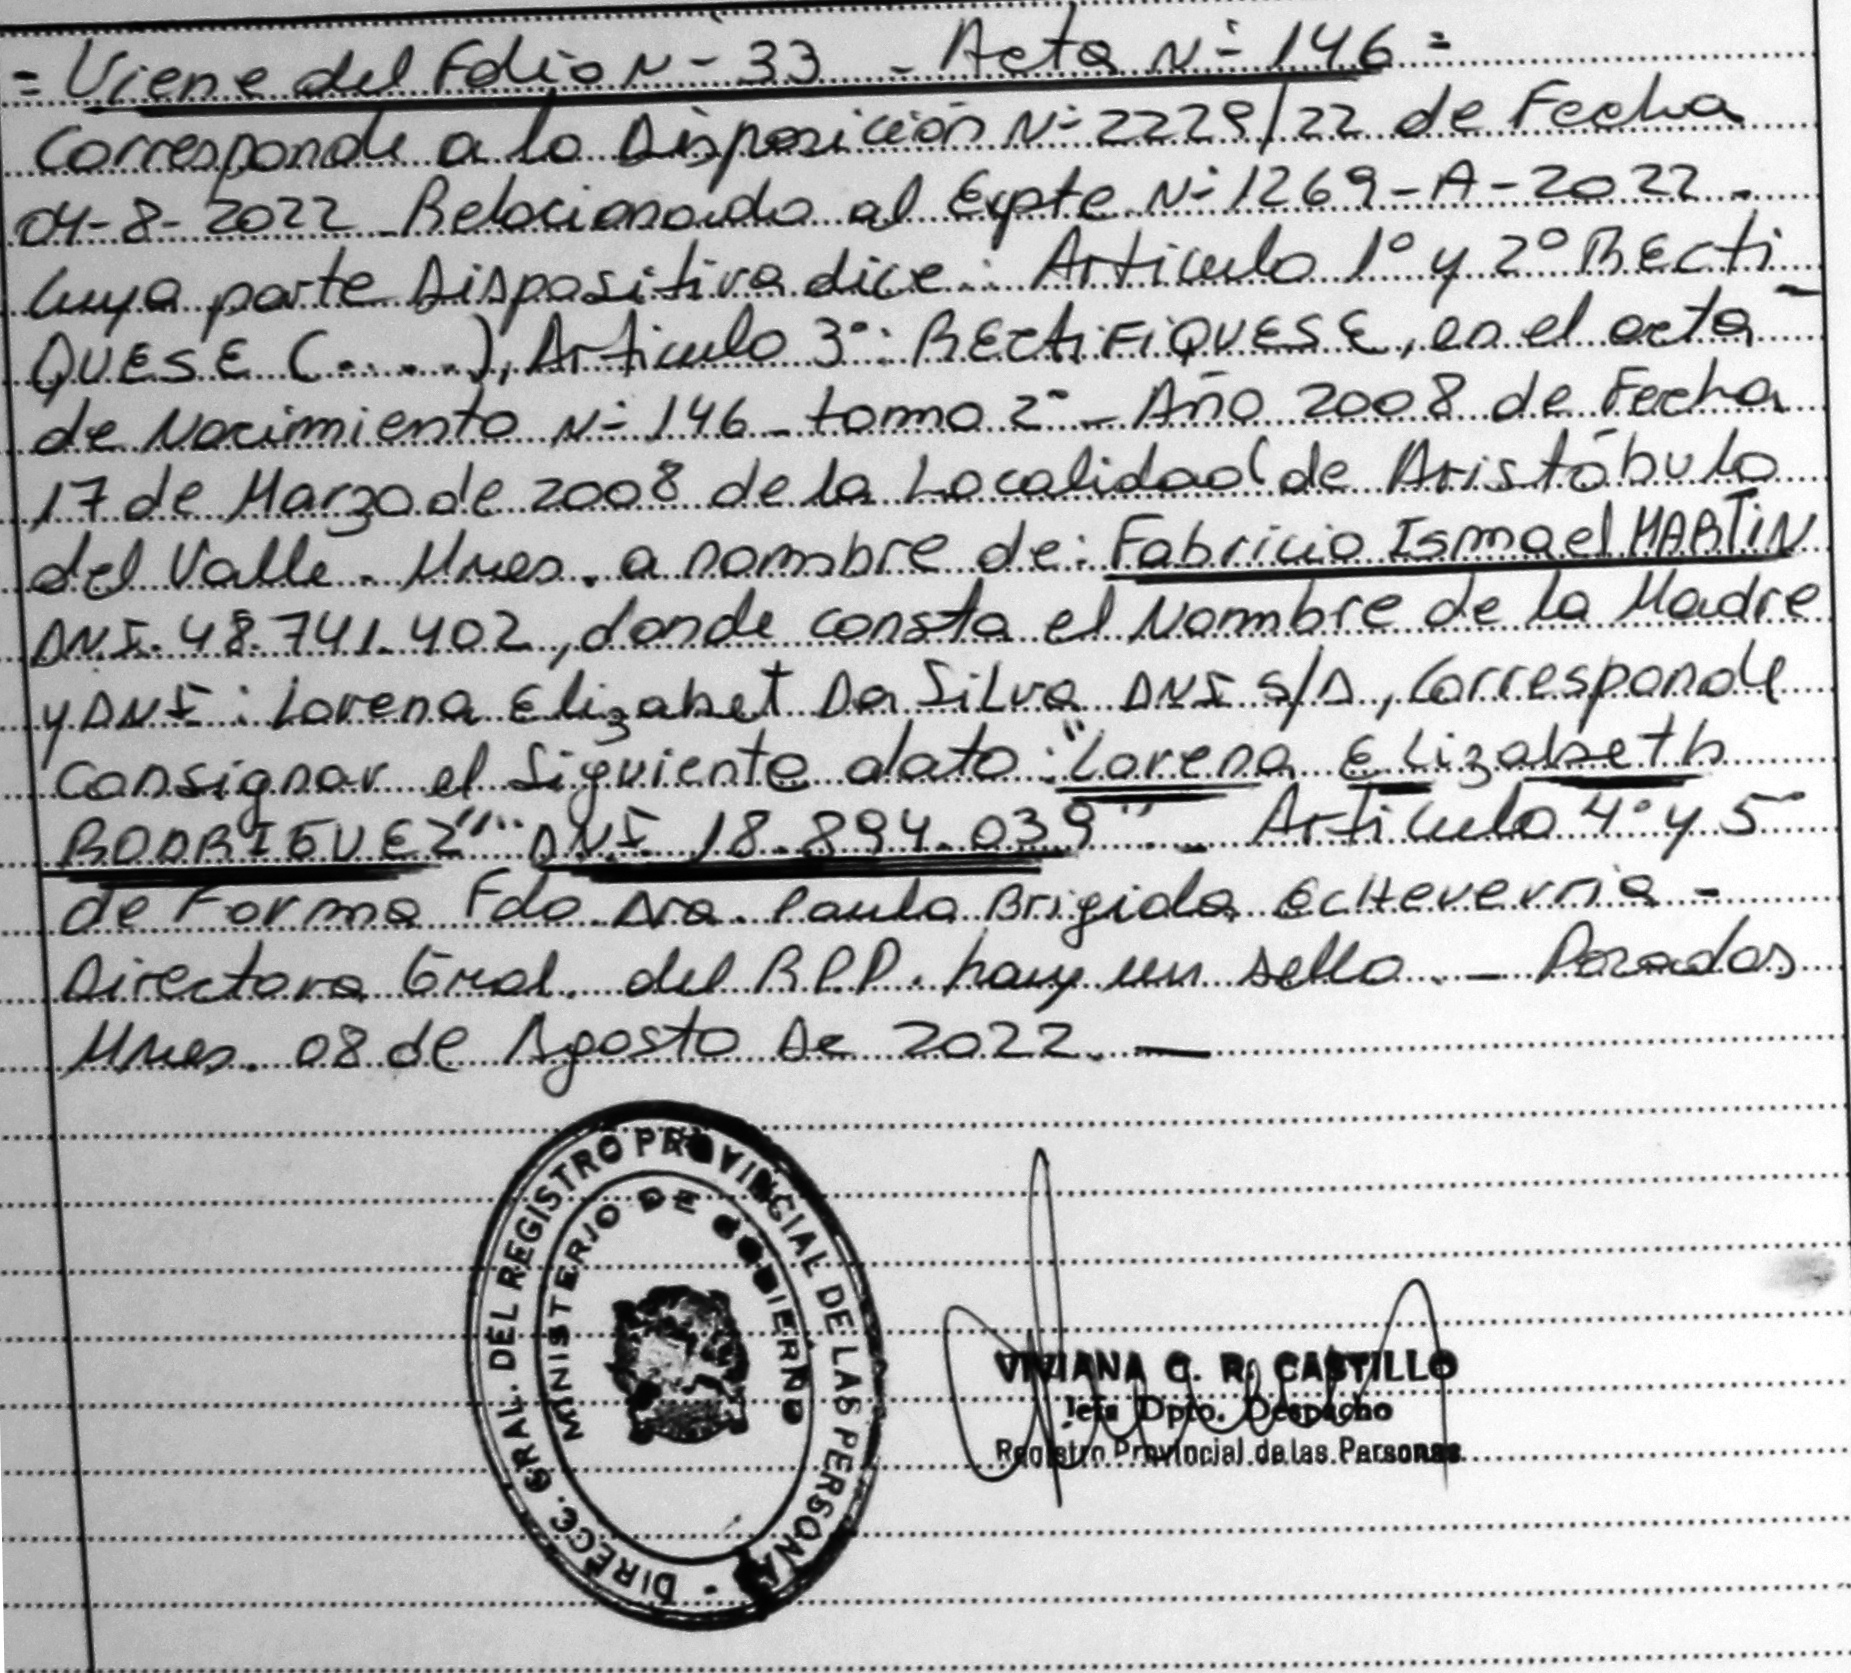 = Viene del Folio N- 33 - Acta N- 146 =
Corresponde a la Disposición N- 2229/22 de Fecha
04-8-2022 Relacionado al Expte N- 1269-A-2022.-
Cuya parte Dispositiva dice: Articulo 1° y 2° RECti-
QUESE (.....), Articulo 3°: RECtiFiQUESE, en el acta
de Nacimiento N- 146 - tomo 2° - Año 2008 de Fecha
17 de Marzo de 2008 de la Localidad de Aristóbulo
del Valle. Mnes. a nombre de: Fabricio Ismael MARTiN
DNI. 48.741.402, donde consta el Nombre de la Madre
y DNI: Lorena Elizabet Da Silva DNI S/D, Corresponde
Consignar el Siguiente dato: "Lorena Elizabeth
RODRIGUEZ" "DNI 18.894.039" - Articulo 4° y 5°
de Forma Fdo. Dra. Paula Brigida EcHeverria -
Directora Gral. del R.P.P. hay un sello. - Posadas
Mnes. 08 de Agosto De 2022. —
DIRECC. GRAL. DEL REGISTRO PROVINCIAL DE LAS PERSONAS
MINISTERIO DE GOBIERNO
VIVIANA C. R. CASTILLO
Jefa Dpto. Despacho
Registro Provincial de las Personas